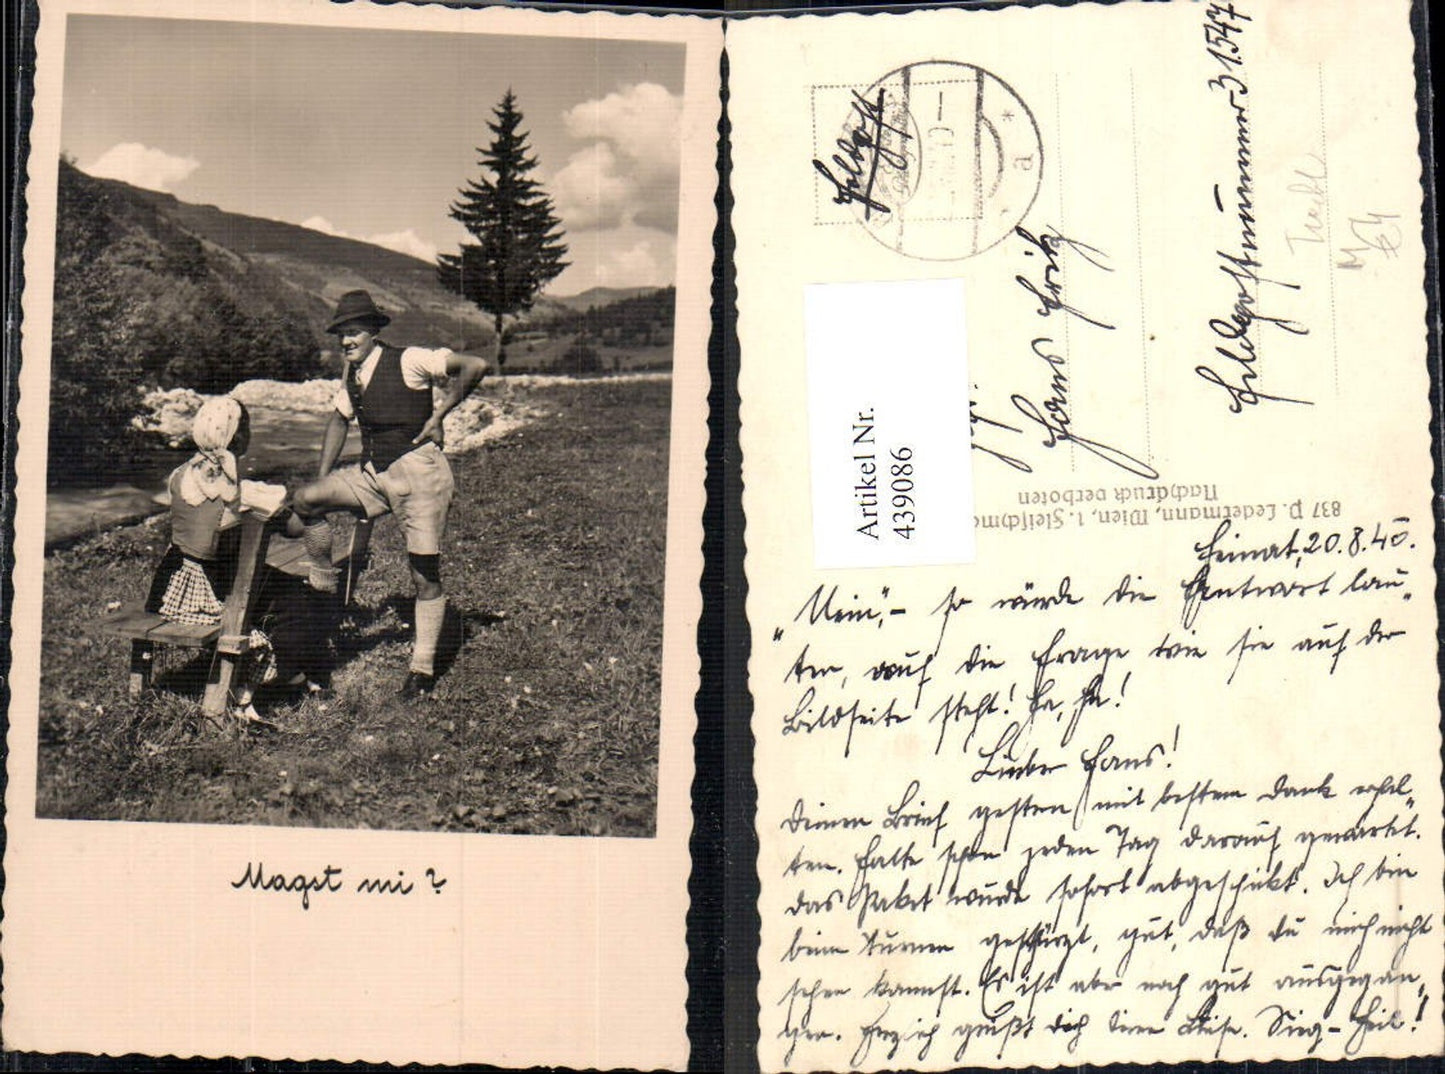 Magst mi?
Feldpost
a
Hans Fritz
Feldpostnummer 31547
Artikel Nr.
439086
837 P. Ledermann, Wien, 1. Fleischm
Nachdruck verboten
Heimat, 20.8.40.
„Nein", – so würde die Antwort lau-
ten, auf die Frage wie sie auf der
Bildseite steht! Ha, Ha!
Lieber Hans!
Deinen Brief gestern mit bestem Dank erhal-
ten. Hatte schon jeden Tag darauf gewartet.
Das Paket wurde sofort abgeschickt. Ich bin
beim Turnen gestürzt, gut, daß du mich nicht
sehen kannst. Es ist aber noch gut ausgegan-
gen. Herzlich grüßt dich deine Sieg-Heil!